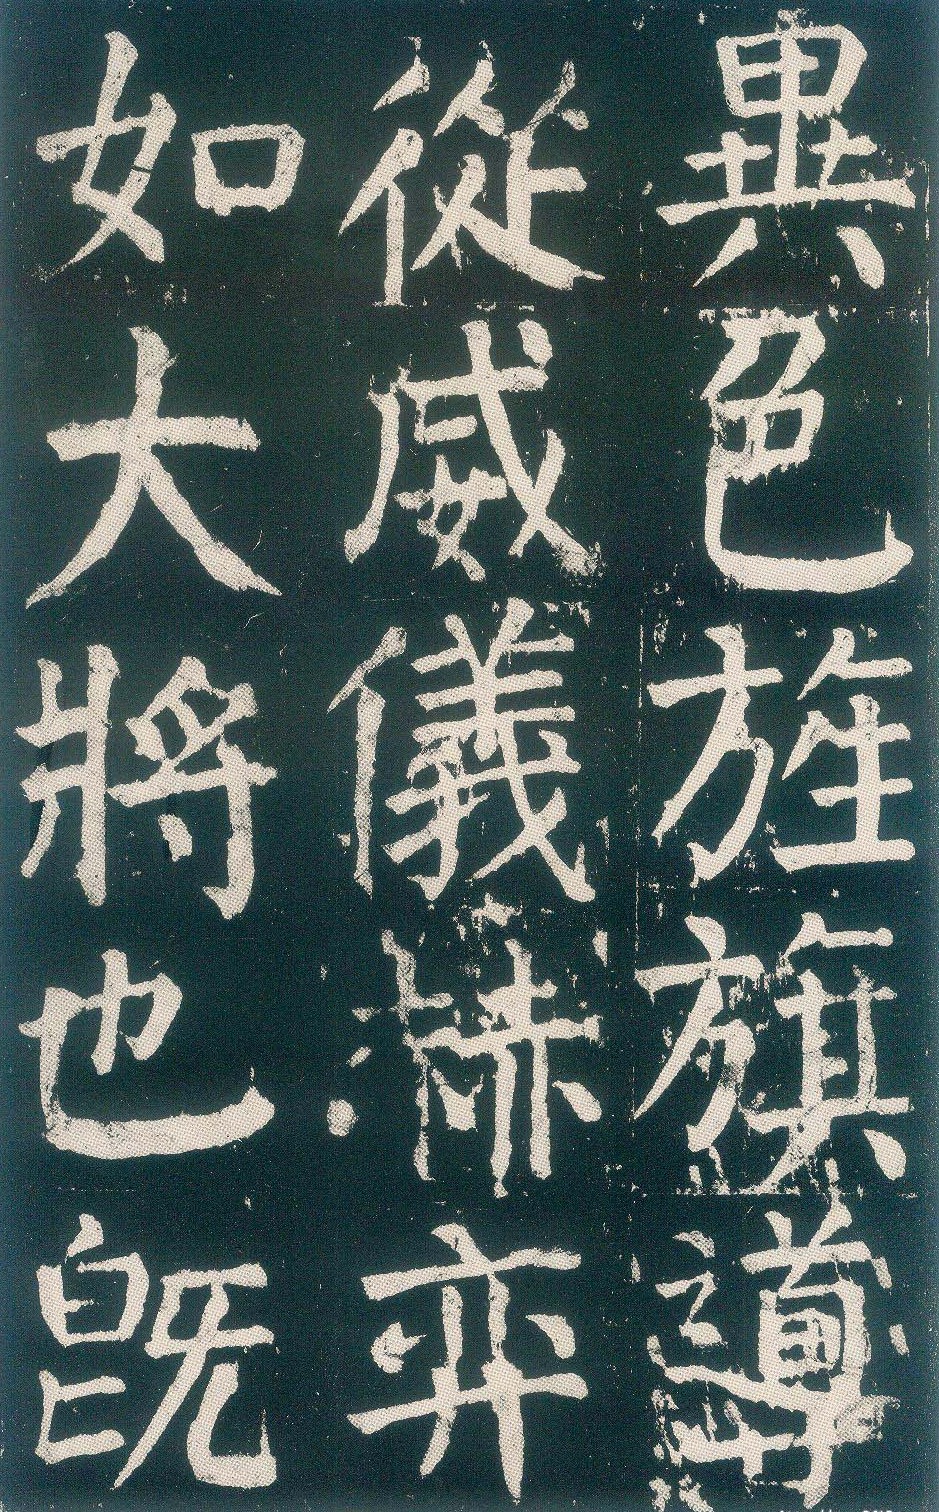 異色旌旗導
從威儀赫弈
如大將也既